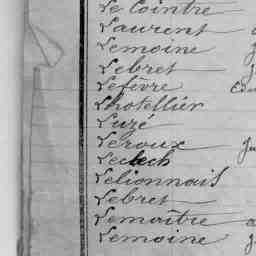 Le Cointre
Laurent
Lemoine
Lebret
Lefèvre
Lhotellier
Luzé
Leroux
Lelionnais
Lebret
Lemaître
Lemoine